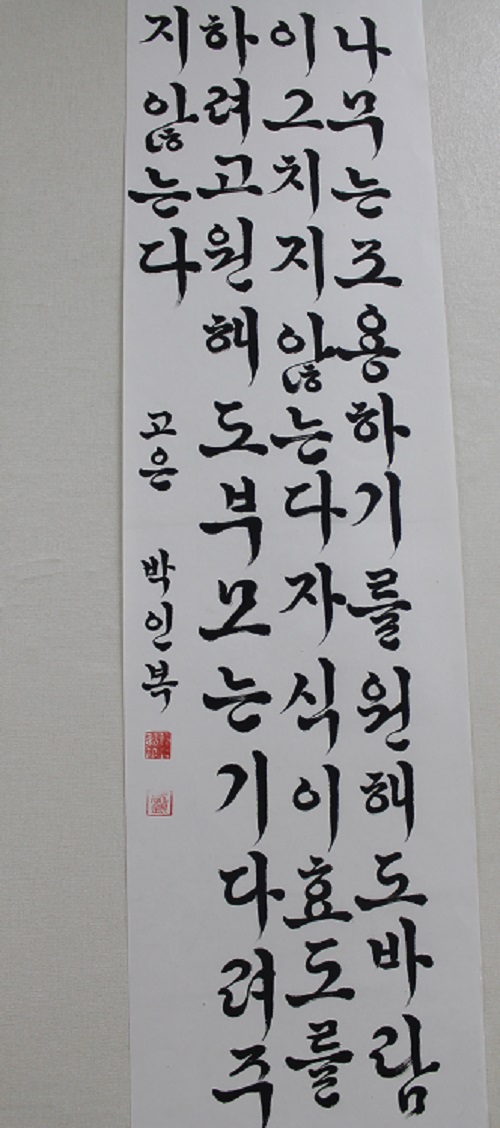 나무는조용하기를원해도바람
이그치지않는다자식이효도를
하려고원해도부모는기다려주
지않는다
고은 박인복